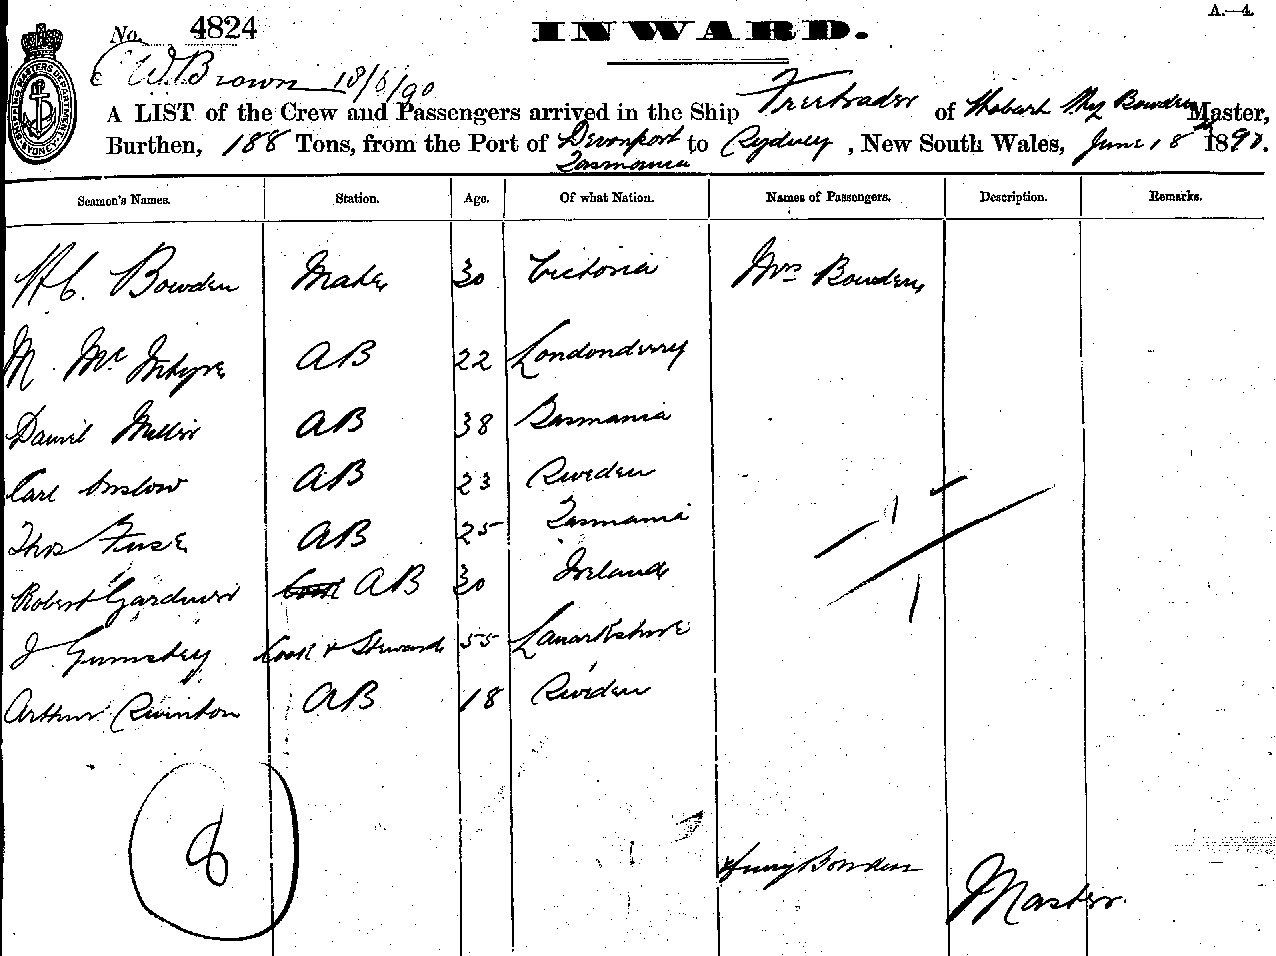 A.—4.
No. 4824 INWARD.
C W. Brown 18/6/90
A LIST of the Crew and Passengers arrived in the Ship Freetrader of Hobart Hy Bowden Master,
Burthen, 188 Tons, from the Port of Devonport Tasmania to Sydney, New South Wales, June 18th 1890.
Seamen's Names. Station. Age. Of what Nation. Names of Passengers. Description. Remarks.
H C. Bowden Mate 30 Victoria Mrs Bowden
M. McIntyre AB 22 Londonderry
Daniel Miller AB 38 Tasmania
Carl Onslow AB 23 Sweden
Thos Fuse AB 25 Tasmania
Robert Gardner Cook AB 30 Ireland
J Cook & Steward 55 Lanarkshire
Arthur Swinton AB 18 Sweden
8
Henry Bowden
Master.